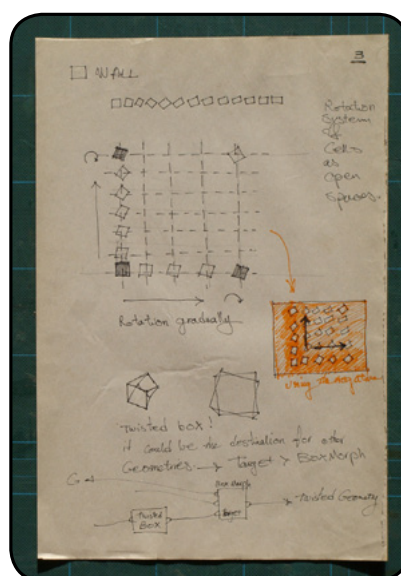 3
WALL
Rotation
System
of
Cells
as
open
Spaces.
Rotation gradually
Using the
Twisted box!
it could be the destination for other
Geometries. → Target > BoxMorph
G
Box Morph
Target
Twisted
Box
Twisted Geometry